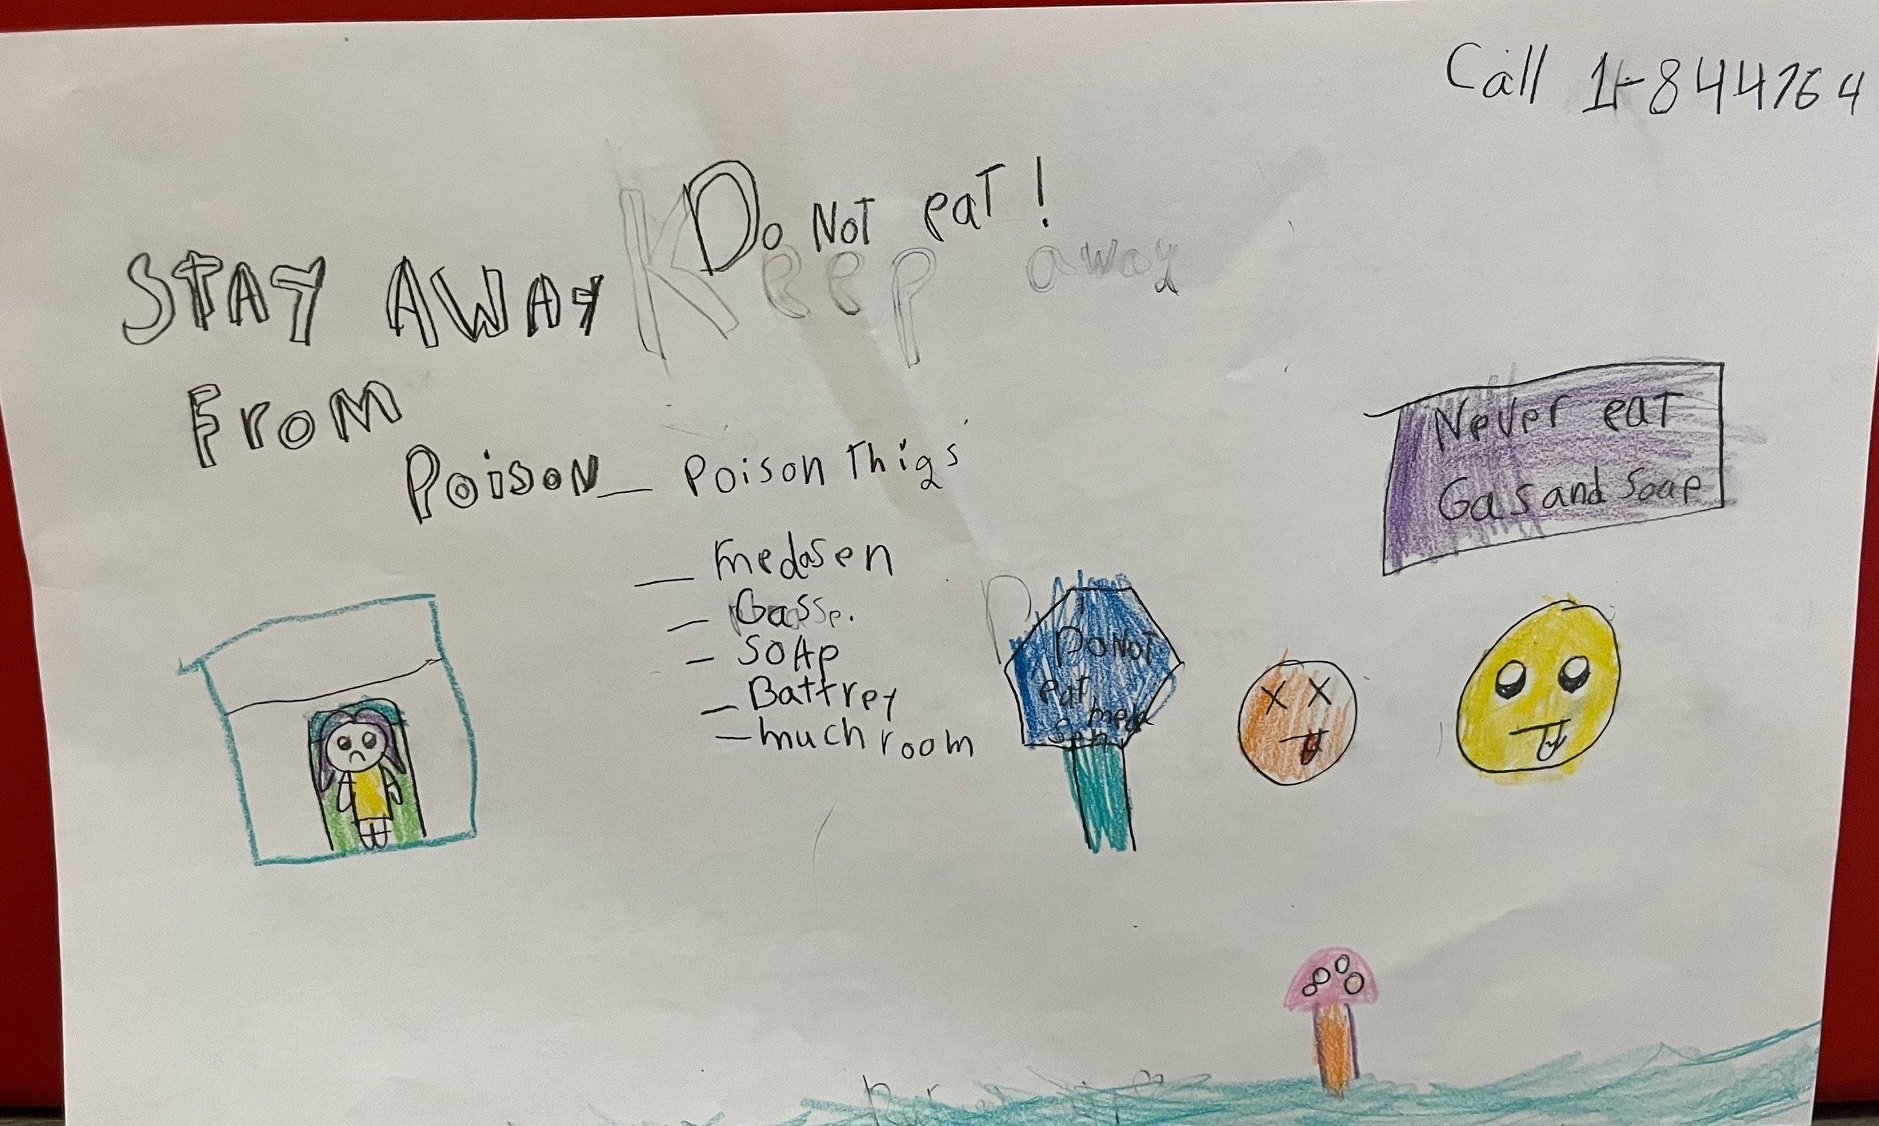 Call 1-844764
Do NoT eaT!
Keep away
STAY AWAY
FroM
PoisoN
Poison Thigs
medasen
Gasse.
SOAP
Battrey
much room
Never eaT
Gas and Soap
Do NoT
eat meda
sen